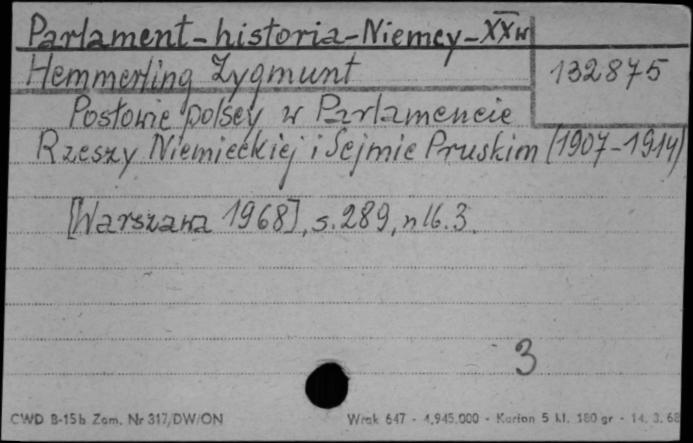 Parlament-historia-Niemcy-XXw
Hemmerling Zygmunt
132875
Posłowie polscy w Parlamencie
Rzeszy Niemieckiej i Sejmie Pruskim (1907-1914)
[Warszawa 1968], s. 289, nlb. 3.
3
CWD B-15b Zam. Nr 317/DW/ON
Wrak 647 - 4.945.000 - Karton 5 kl. 180 gr - 14. 3. 68